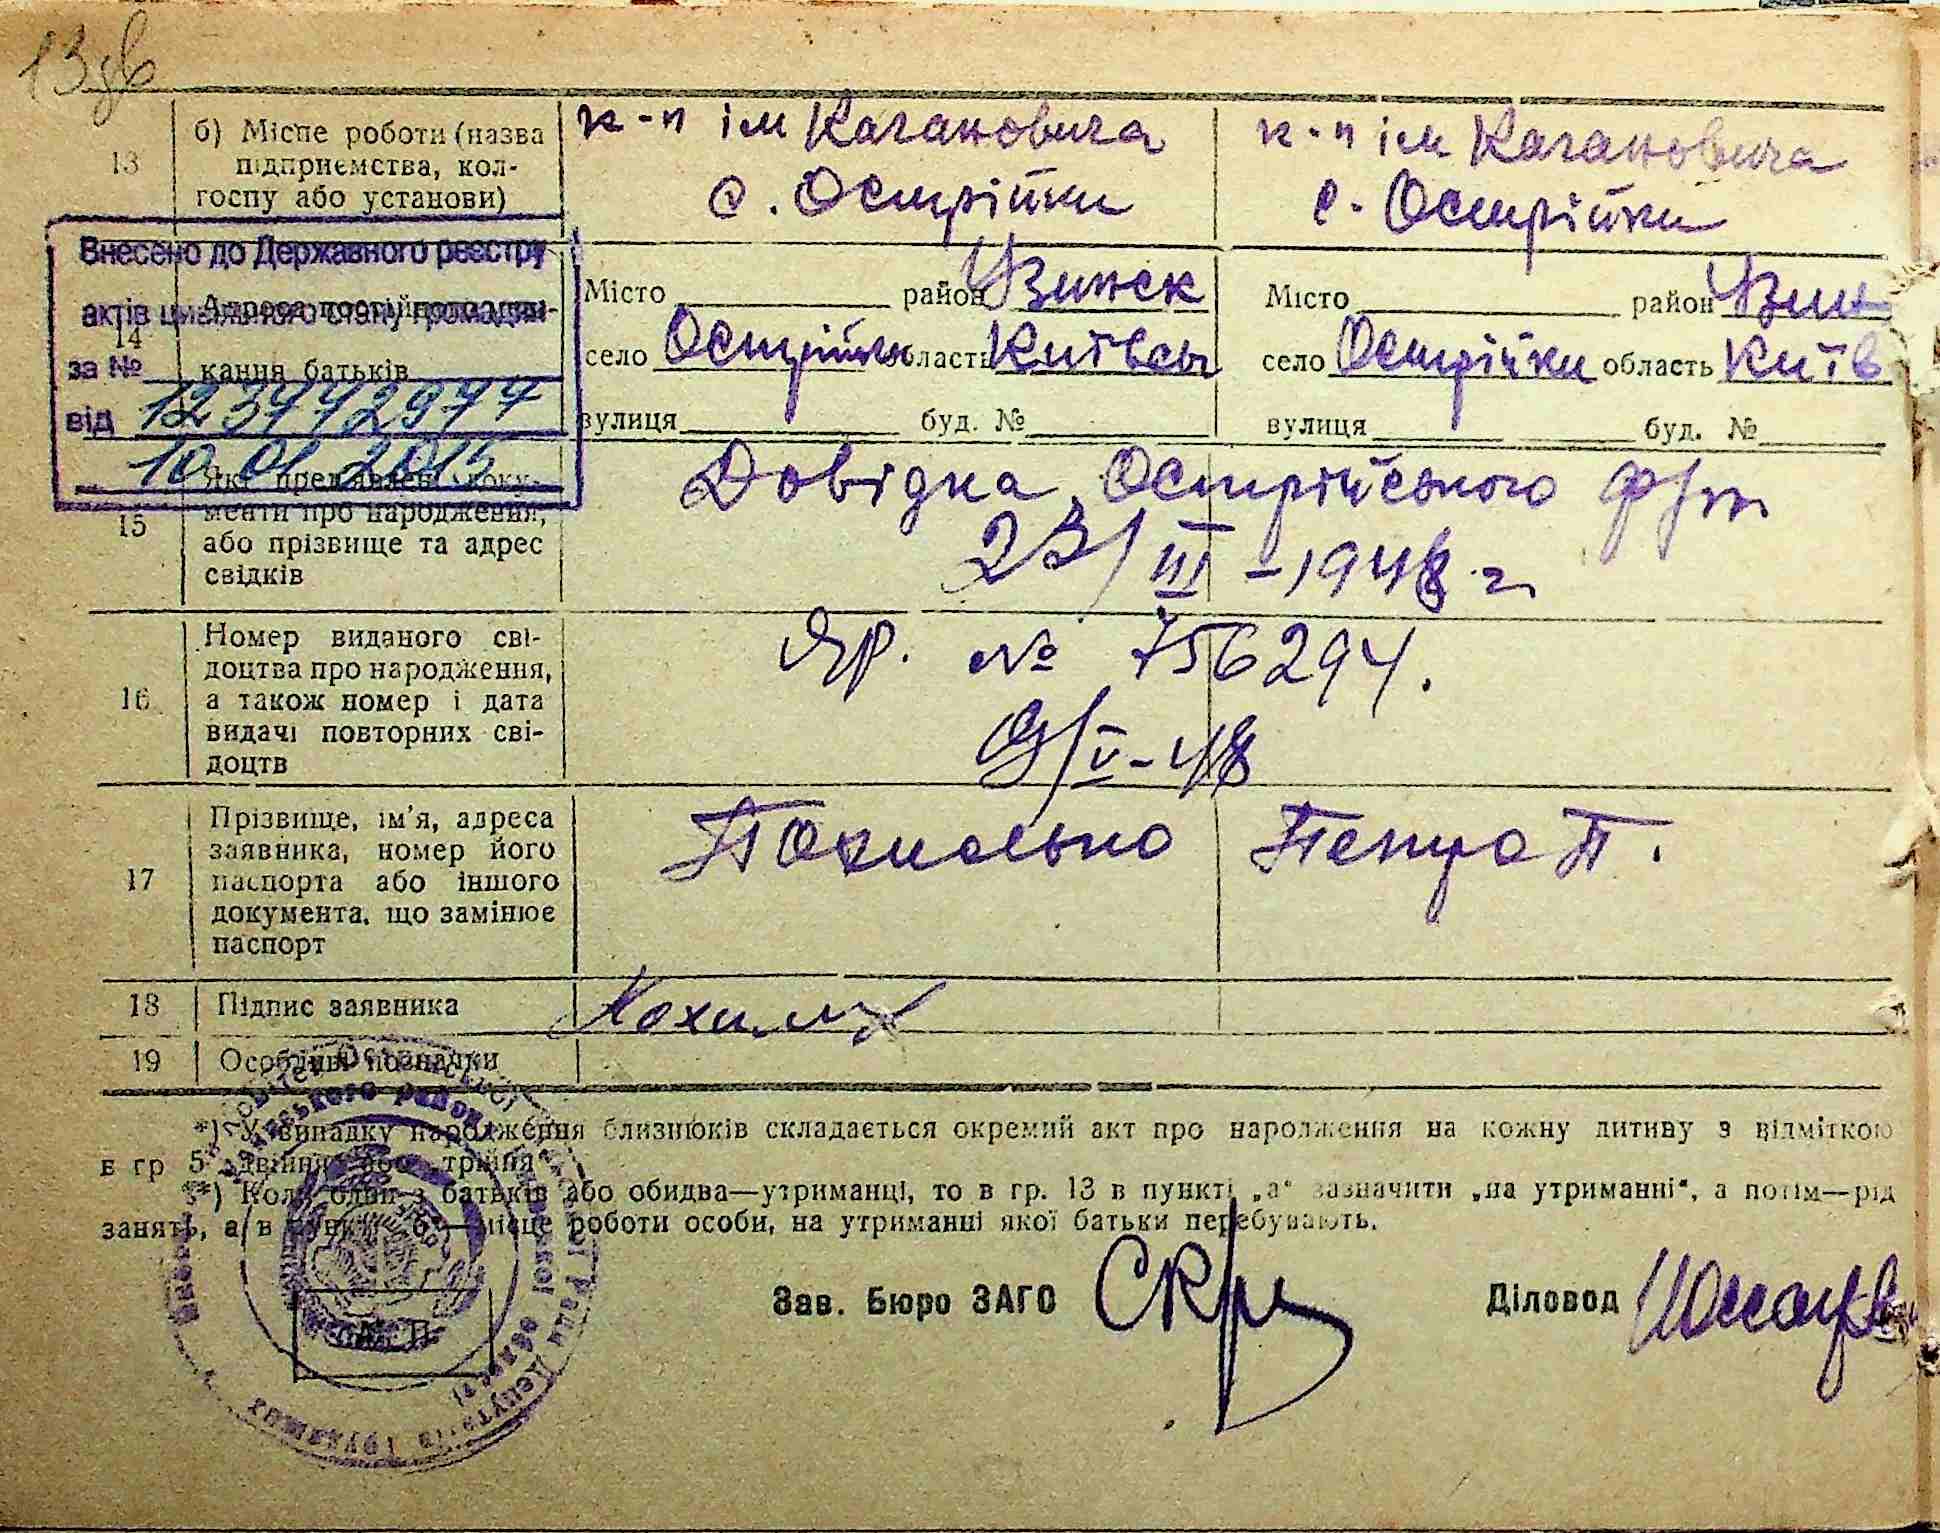 13 зв
13
б) Місце роботи (назва
підприємства, кол-
госпу або установи)
к-п ім Кагановича
с. Острійки
к-п ім Кагановича
с. Острійки
Внесено до Державного реєстру
актів цивільного стану громадян
за №
від
12 37742977
10.01.2015
14
кання батьків
Місто район Узинск
село Острійки область Київськ
вулиця буд. №
Місто район Узин
село Острійки область Київ
вулиця буд. №
15
Які пред'явлені доку-
менти про народження,
або прізвище та адрес
свідків
Довідка Острійського ф/п
23/III-1948 г.
16
Номер виданого сві-
доцтва про народження,
а також номер і дата
видачі повторних сві-
доцтв
ЯР. № 756294.
9/V-48
17
Прізвище, ім'я, адреса
заявника, номер його
паспорта або іншого
документа, що замінює
паспорт
Петра П.
18
Підпис заявника
19
Особливі позначки
*) У випадку народження близнюків складається окремий акт про народження на кожну дитину з відміткою
в гр 5 „двійня" або „трійня".
**) Коли один з батьків або обидва—утриманці, то в гр. 13 в пункті „а" зазначити „на утриманні", а потім—рід
занять, а в пункті „б"—місце роботи особи, на утриманні якої батьки перебувають.
Зав. Бюро ЗАГС
Діловод
М. П.